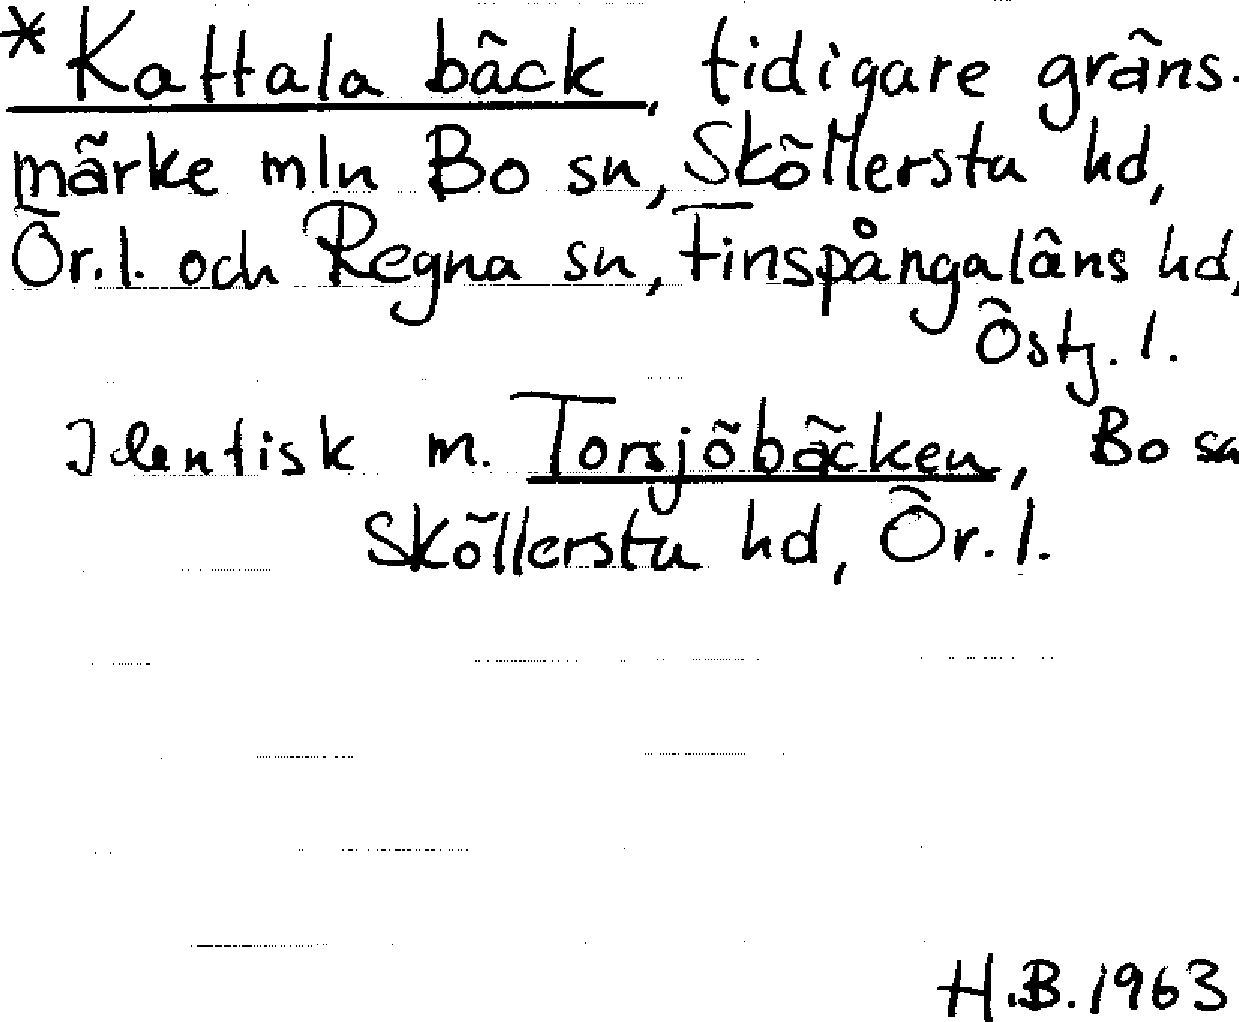 * Kattala bäck, tidigare gräns-
märke mln Bo sn, Sköllersta hd,
Ör. l. och Regna sn, Finspångaläns hd,
Östg. l.
Identisk m. Torsjöbäcken, Bo sn
Sköllersta hd, Ör. l.
H.B. 1963